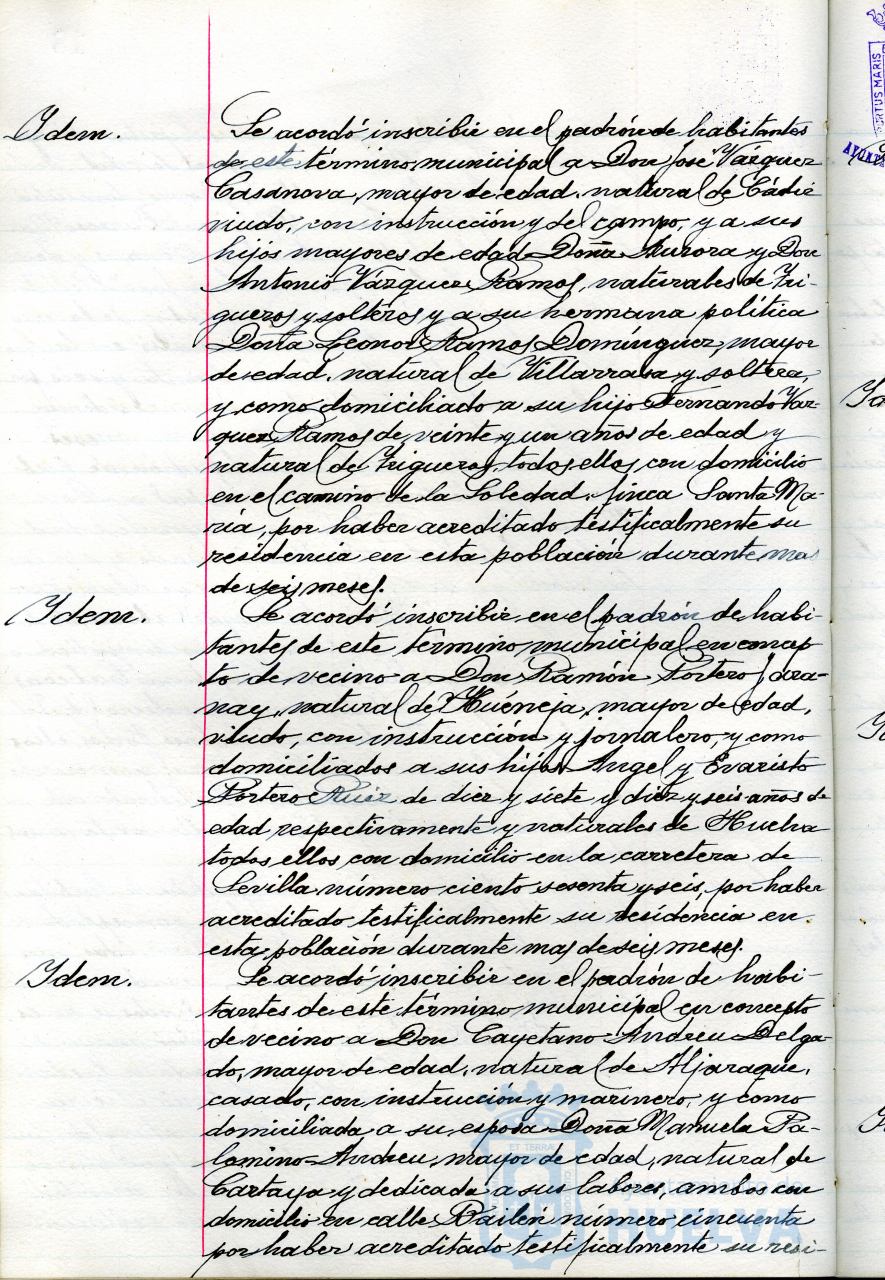 Ydem.
Se acordó inscribir en el padrón de habitantes
de este término municipal a Don José Vázquez
Casanova, mayor de edad, natural de Cádiz
viudo, con instrucción y del campo, y a sus
hijos mayores de edad Doña Aurora y Don
Antonio Vázquez Ramos, naturales de Tri-
gueros y solteros y a su hermana política
Doña Leonor Ramos Domínguez, mayor
de edad, natural de Villarrasa y soltera,
y como domiciliado a su hijo Fernando Váz-
quez Ramos de veinte y un años de edad y
natural de Trigueros, todos ellos con domicilio
en el camino de la Soledad, finca Santa Ma-
ría, por haber acreditado testificalmente su
residencia en esta población durante mas
de seis meses.
Ydem.
Se acordó inscribir en el padrón de habi-
tantes de este término municipal en concep
to de vecino a Don Ramón Portero Jara-
nay, natural de Huéneja, mayor de edad,
viudo, con instrucción y jornalero, y como
domiciliados a sus hijos Angel y Evaristo
Portero Ruiz de diez y siete y diez y seis años de
edad respectivamente y naturales de Huelva
todos ellos con domicilio en la carretera de
Sevilla número ciento sesenta y seis, por haber
acreditado testificalmente su residencia en
esta población durante mas de seis meses.
Ydem.
Se acordó inscribir en el padrón de habi-
tantes de este término municipal en concepto
de vecino a Don Cayetano Andreu Delga-
do, mayor de edad, natural de Aljaraque,
casado, con instrucción y marinero, y como
domiciliada a su esposa Doña Manuela Pa-
lomino Andreu, mayor de edad, natural de
Cartaya y dedicada a sus labores, ambos con
domicilio en calle Bailén número cincuenta
por haber acreditado testificalmente su resi-
PORTUS MARIS
ET TERRAE
Ayuntamiento de
HUELVA